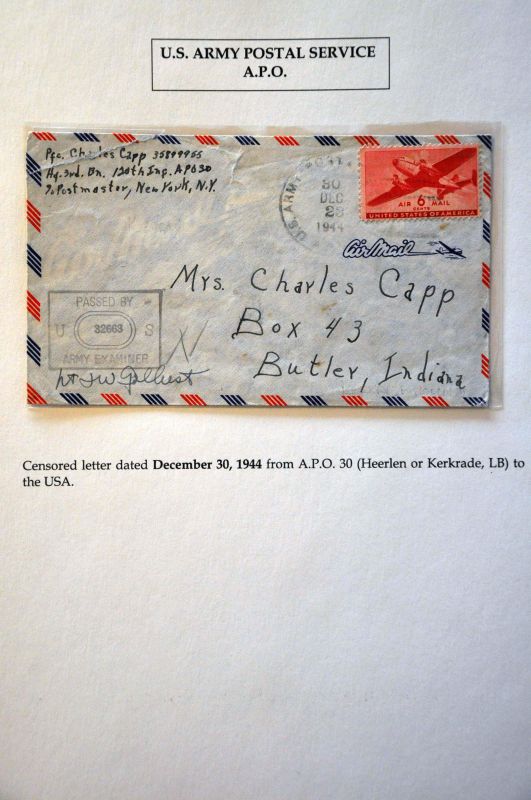 U.S. ARMY POSTAL SERVICE
A.P.O.
Pfc. Charles Capp 35899955
Hq. 3rd. Bn. 120th Inf. APO 30
% Postmaster, New York, N.Y.
U.S. ARMY
30
DEC
28
1944
AIR 6 MAIL
CENTS
UNITED STATES OF AMERICA
Air Mail
Mrs. Charles Capp
Box 43
Butler, Indiana
PASSED BY
U 32663 S
ARMY EXAMINER
Censored letter dated December 30, 1944 from A.P.O. 30 (Heerlen or Kerkrade, LB) to
the USA.